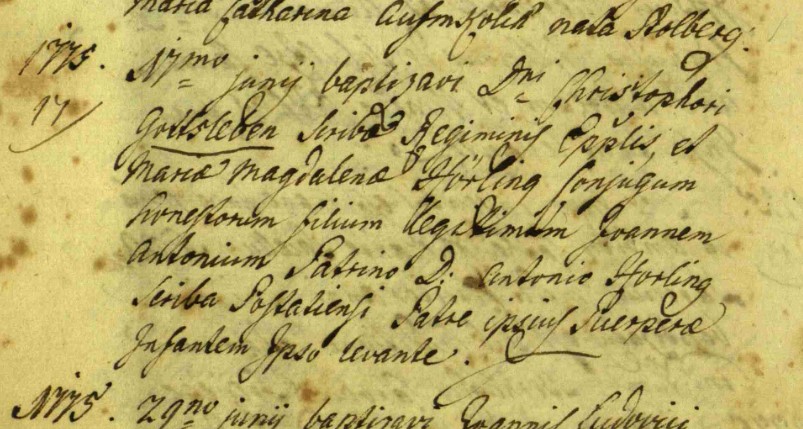 Maria Catharina Ausmkolk nata Stolberg.
1775. 17mo junij baptizavi Dni Christophori
17 Gottsleben scribæ Regiminis Eppˡis et
Mariæ Magdalenæ Hörling Conjugum
honestorum filium llegitimum Joannem
Antonium Patrino D: Antonio Horling
Scriba Postatiensi Patre ipsius Puerperæ
Infantem Ipso levante.
1775. 29no junij baptizavi Joannis Ludovici